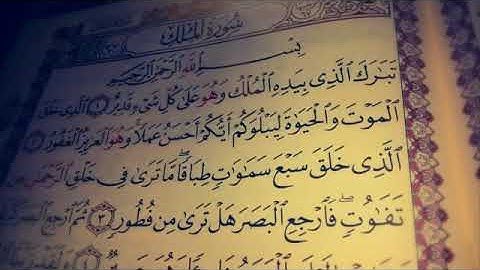 سُورَةُ الْمُلْكِ
بِسْمِ اللَّهِ الرَّحْمَٰنِ الرَّحِيمِ
تَبَارَكَ الَّذِي بِيَدِهِ الْمُلْكُ وَهُوَ عَلَىٰ كُلِّ شَيْءٍ قَدِيرٌ ١ الَّذِي خَلَقَ
الْمَوْتَ وَالْحَيَاةَ لِيَبْلُوَكُمْ أَيُّكُمْ أَحْسَنُ عَمَلًا وَهُوَ الْعَزِيزُ الْغَفُورُ ٢
الَّذِي خَلَقَ سَبْعَ سَمَاوَاتٍ طِبَاقًا مَّا تَرَىٰ فِي خَلْقِ الرَّحْمَٰنِ مِن
تَفَاوُتٍ ۖ فَارْجِعِ الْبَصَرَ هَلْ تَرَىٰ مِن فُطُورٍ ٣ ثُمَّ ارْجِعِ الْبَصَرَ